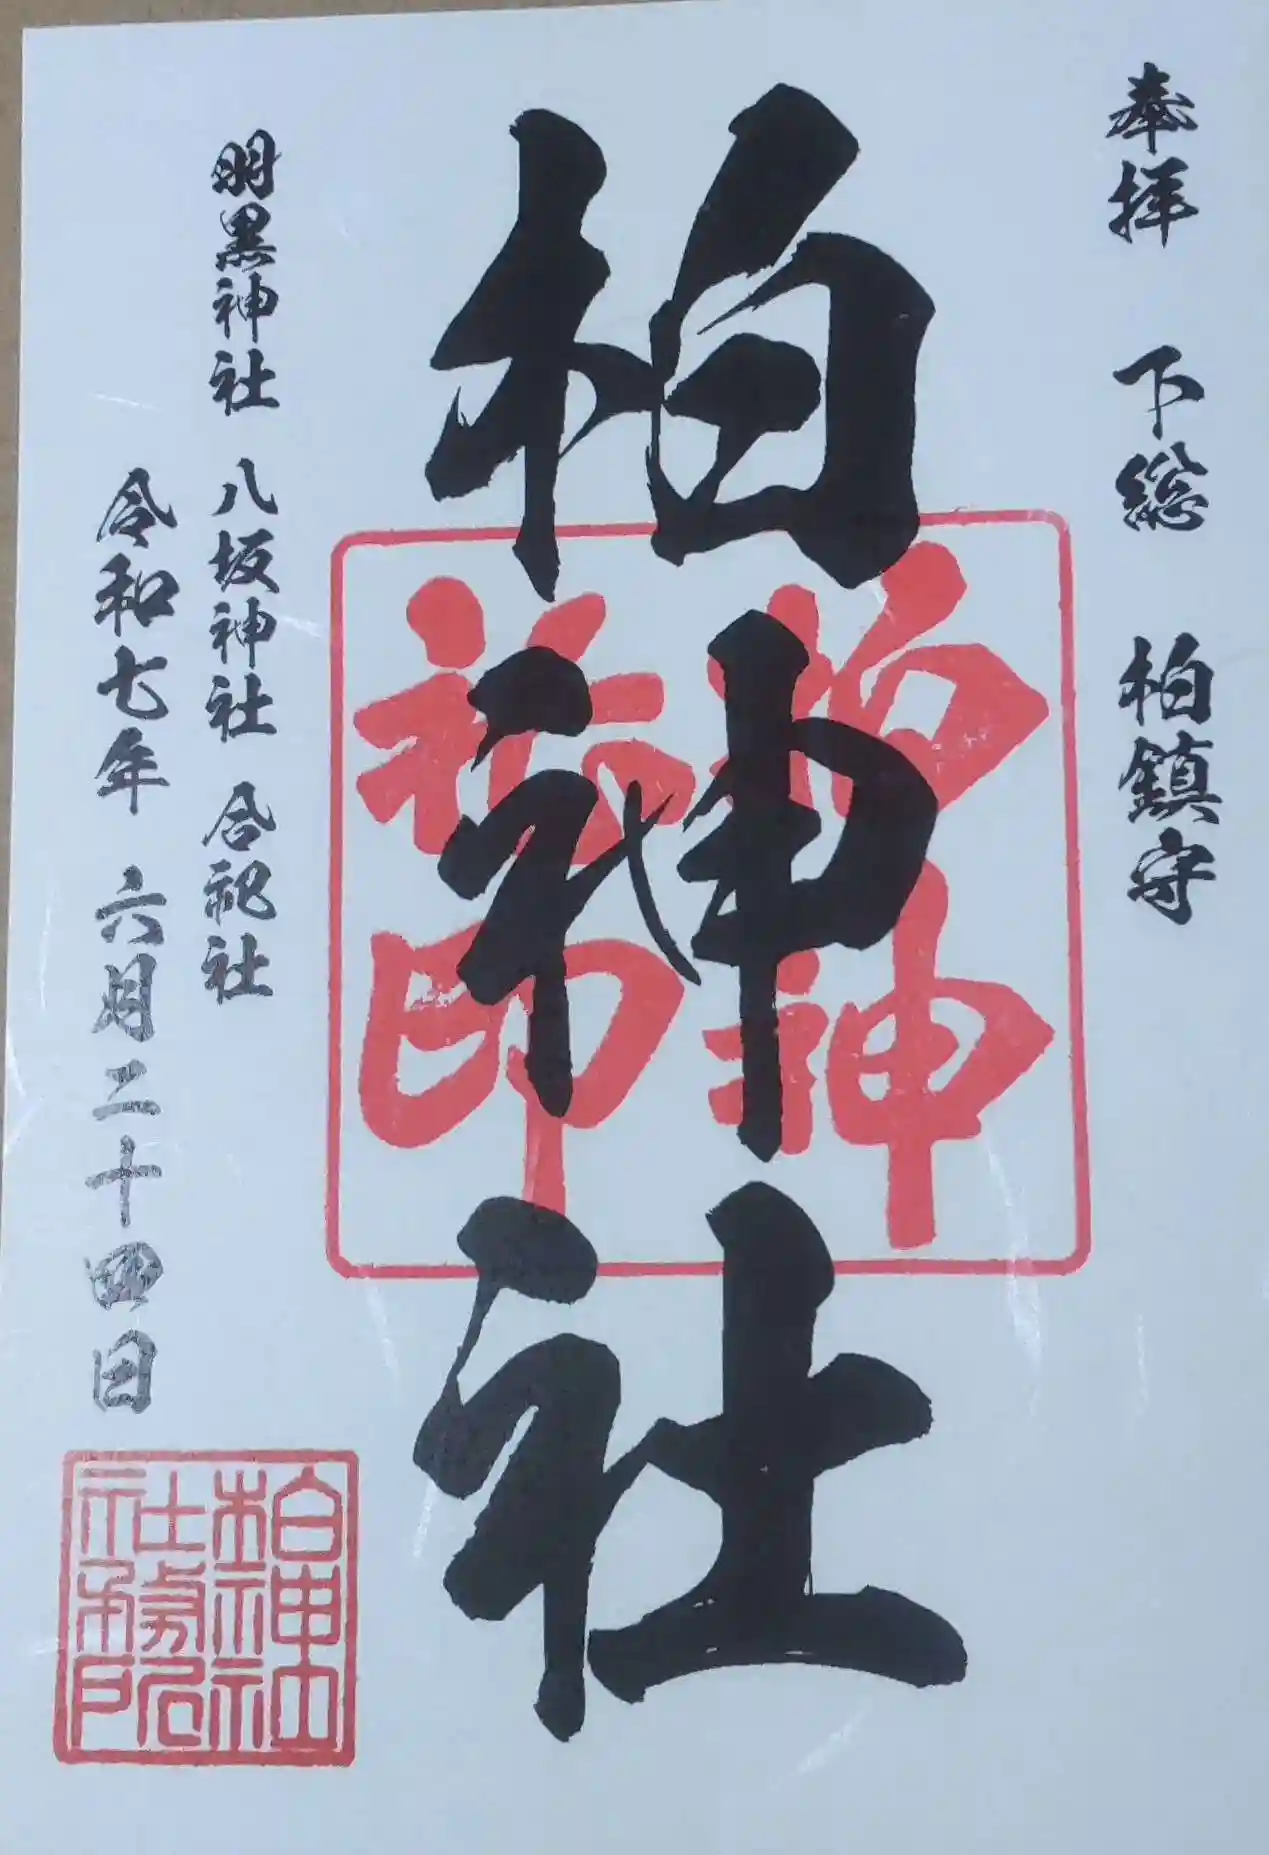 奉拝 下総 柏鎮守
柏神社
柏神
社印
羽黒神社 八坂神社 合祀社
令和七年 六月二十四日
柏神社
社務所